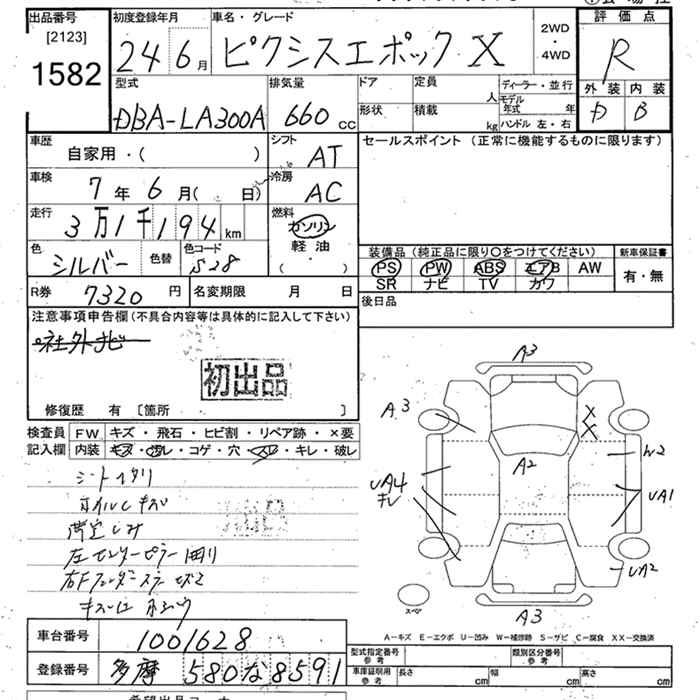 出品番号
[2123]
1582
初度登録年月
24 6月
車名・グレード
ピクシスエポック X
2WD
・
4WD
評価点
R
外装 内装
D B
型式
DBA-LA300A
排気量
660 cc
ドア
形状
定員
人
積載
kg
ディーラー・並行
モデル年式 年
ハンドル 左・右
車歴
自家用・( )
シフト
AT
セールスポイント (正常に機能するものに限ります)
車検
7年 6月( 日)
冷房
AC
走行
3万1千194km
燃料
ガソリン
軽油
( ・ )
色
シルバー
色替
色コード
S28
装備品 (純正品に限り○をつけてください)
PS PW ABS エアB AW
SR ナビ TV カワ
新車保証書
有・無
R券 7320円
名変期限 月 日
後日品
注意事項申告欄(不具合内容等は具体的に記入して下さい)
社外ナビ
初出品
修復歴 有 [箇所 ]
検査員
記入欄
FW キズ・飛石・ヒビ割・リペア跡・×要
内装 キズ・汚レ・コゲ・穴・スレ・キレ・破レ
シートヘタリ
ホイルCキズ
左センターピラー曲り
A3
A3
A2
W2
UA4
キレ
UA1
UA2
A3
スペア
A－キズ E－エクボ U－凹み W－補修跡 S－サビ C－腐食 XX－交換済
車台番号 1001628
登録番号 多摩 580な8591
型式指定番号
参考
類別区分番号
参考
車庫証明用
参考
長さ cm
幅 cm
高さ cm